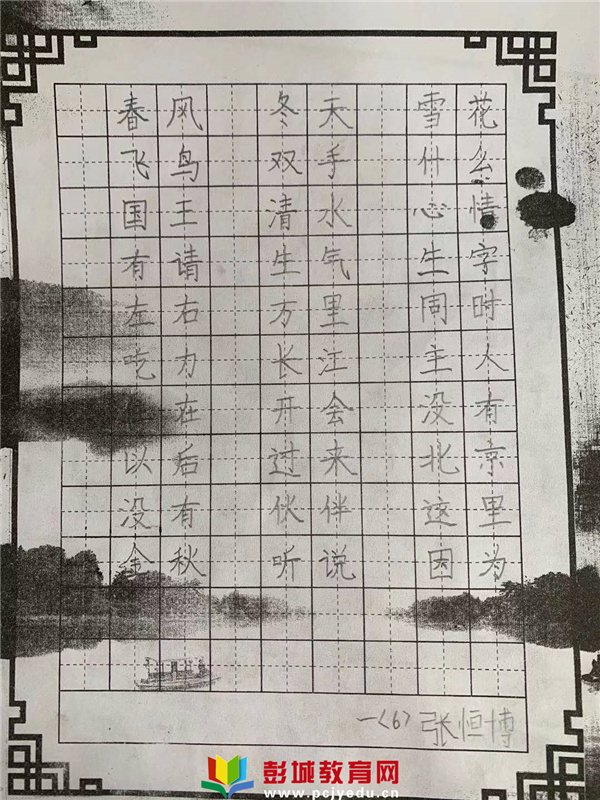 春风 冬天 雪花
飞鸟 双手 什么
国王 清水 心情
有请 生气 生字
左右 万里 时
吃力 长江 主人
在 开会 没有
以后 过来 北京
没有 伙伴 这里
金秋 听说 因为
一〈6〉张恒博
彭城教育网
www.pcjyedu.cn